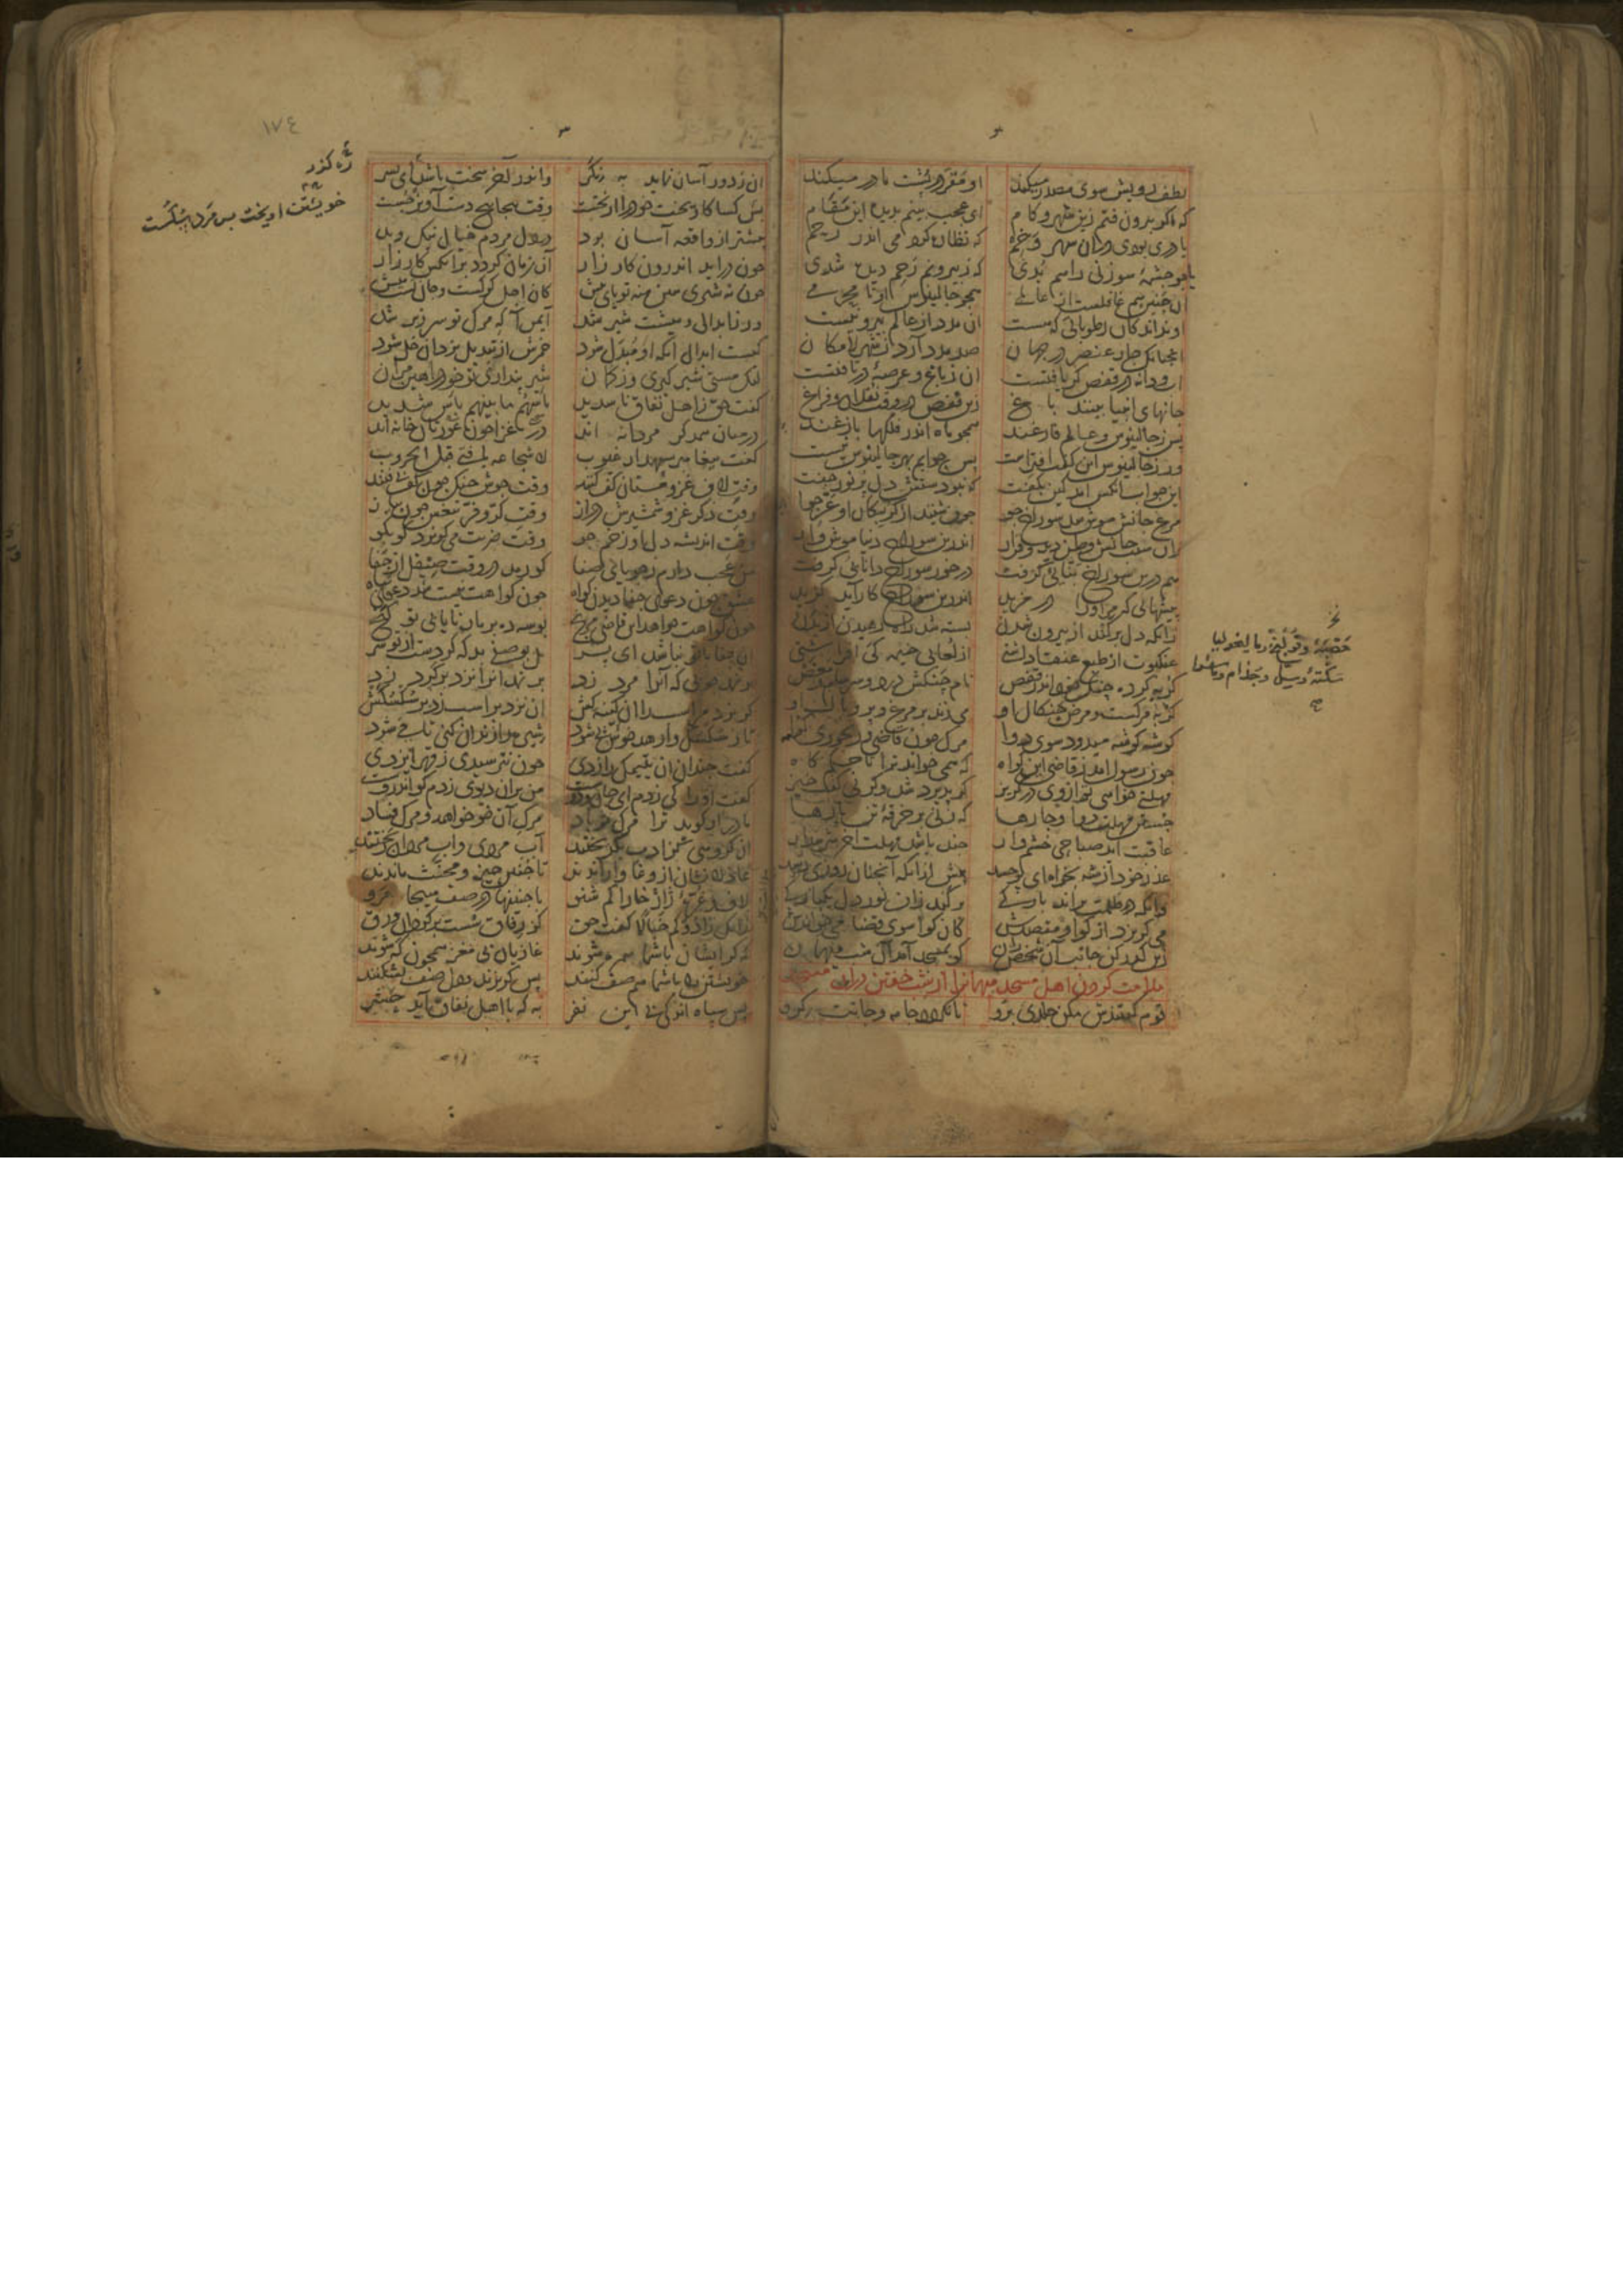 لطف رویش سوی مصدر میکند او مقر در پشت مادر میکند
که اگر بیرون فتم زین شهر و کام ای عجب بینم بدیده این مقام
یا دری بودی در آن شهر وخم که نظاره کردمی اندر رحم
یا چو چشمهٔ سوزنی راهم بدی که ز بیرونم رحم دیده شدی
آن جنین هم غافلست از عالمی همچو جالینوس او نا محرمی
او نداند کان رطوباتی که هست آن مدد از عالم بیرونیست
آنچنانک چار عنصر در جهان صد مدد آرد ز شهر لامکان
آب و دانه در قفص گر یافتست آن ز باغ و عرصهٔ دریافتست
جانهای انبیا بینند باغ زین قفص در وقت نقلان و فراغ
پس ز جالینوس و عالم فارغند همچو ماه اندر فلکها بازغند
ور ز جالینوس این گفت افتراست پس جوابم بهر جالینوس نیست
این جواب آنکس آمد کین بگفت که نبودستش دل پر نور جفت
مرغ جانش موش شد سوراخ جو چون شنید از گربگان او عرجوا
زان سبب جانش وطن دید و قرار اندرین سوراخ دنیا موش وار
هم درین سوراخ بنایی گرفت در خور سوراخ دانایی گرفت
پیشهایی که مر او را در مزید اندرین سوراخ کار آید گزید
زانکه دل بر کند از بیرون شدن بسته شد راه رهیدن از بدن
عنکبوت ار طبع عنقا داشتی از لعابی خیمه کی افراشتی
گربه کرده چنگ خود اندر قفص نام چنگش درد و سرسام و مغص
گربه مرگست و مرض چنگال او می زند بر مرغ و پر و بال او
گوشه گوشه میدود سوی دوا مرگ چون قاضی و رنجوری گوا
چون رسول آمد ز قاضی این گواه که همی خواند ترا تا حکم گاه
مهلتی خواهی تو از وی در گریز گر پذیرد شد و گرنی گفت خیز
جستن مهلت دوا و چارها که زنی بر خرقهٔ تن پارها
عاقبت آید صباحی خشم وار چند باشد مهلت آخر شرم دار
عذر خود از شه بخواه ای پر حسد پیش از آنکه آنچنان روزی رسد
وانکه در ظلمت براند بارگی برکند زان نور دل یکبارگی
می گریزد از گوا و مقصدش کان گوا سوی قضا می خواندش
زین گذر کن جانب آن شخص ران کو بمسجد آمد آن شب میهمان
ملامت کردن اهل مسجد میهمانرا از شب خفتن در آن مسجد
قوم گفتندش مکن جلدی برو تا نگردد جامه و جانت گرو
حصبهٔ وقولنج و مالیخولیا
سکته و سل و جذام و ماشرا
آن ز دور آسان نماید به نگر و اندر آخر سخت باشد ای پسر
بس کسا کاویخت خود را از نخست وقت پیچاپیچ دست آویز جست
پیشتر از واقعه آسان بود در دل مردم خیال نیک و بد
چون درآید اندرون کارزار آن زمان گردد برآنکس کار زار
چون نه شیری هین منه تو پای پیش کان اجل گرگست و جان تست میش
ور ز ابدالی و میشت شیر شد ایمن آ که مرگ تو سر زیر شد
کیست ابدال آنکه او مبدل شود خمرش از تبدیل یزدان خل شود
لیک مستی شیر گیری وز گمان شیر پنداری تو خود را هین مران
گفت حق ز اهل نفاق ناسدید بأسهم ما بینهم بأس شدید
در میان همدگر مردانه اند در غزا چون عورتان خانه اند
گفت پیغامبر سپهدار غیوب لا شجاعه یا فتی قبل الحروب
وقت لاف غزو مستان کف کنند وقت جوش جنگ چون کف بفتند
وقت ذکر غزو شمشیرش دراز وقت کر و فر تیغش چون پیاز
وقت اندیشه دل او زخم جو وقت ضربت می گریزد کو بکو
من عجب دارم ز جویای صفا کو رمد در وقت صیقل از جفا
عشق چون دعوی جفا دیدن گواه چون گواهت نیست شد دعوی تباه
چون گواهت خواهد این قاضی مرنج بوسه ده بر مار تا یابی تو گنج
آن جفا با تو نباشد ای پسر بل بوصف بد که کردست از تو سر
بر نمد چوبی که آنرا مرد زد بر نمد آنرا نزد بر گرد زد
گر بزد مر اسب را آن کینه کش آن نزد بر اسب زد بر سکسکش
تا ز سکسک وارهد خوش پی شود شیره را زندان کنی تا می شود
گفت چندان آن یتیمک را زدی چون نترسیدی ز قهر ایزدی
گفت او را کی زدم ای جان دوست من بران دیوی زدم کو اندروست
مادر ار گوید ترا مرگ تو باد مرگ آن خو خواهد و مرگ فساد
آن گروهی کز ادب بگریختند آب مردی و آب مردان ریختند
عاذلانشان از وغا وا راندند تا چنین حیز و مخنث ماندند
لاف و غرهٔ ژاژخا را کم شنو با چنینها در صف هیجا مرو
زانک زادوکم خبالا گفت حق کز رفاق سست برگردان ورق
که گر ایشان با شما همره شوند غازیان بی مغز همچون که شوند
خویشتن را با شما هم صف کنند پس گریزند و دل صف بشکنند
پس سپاه اندکی بی این نفر به که با اهل نفاق آید حشر
١٧٤
ره گذر
خویشتن آویخت بس مرد شکست